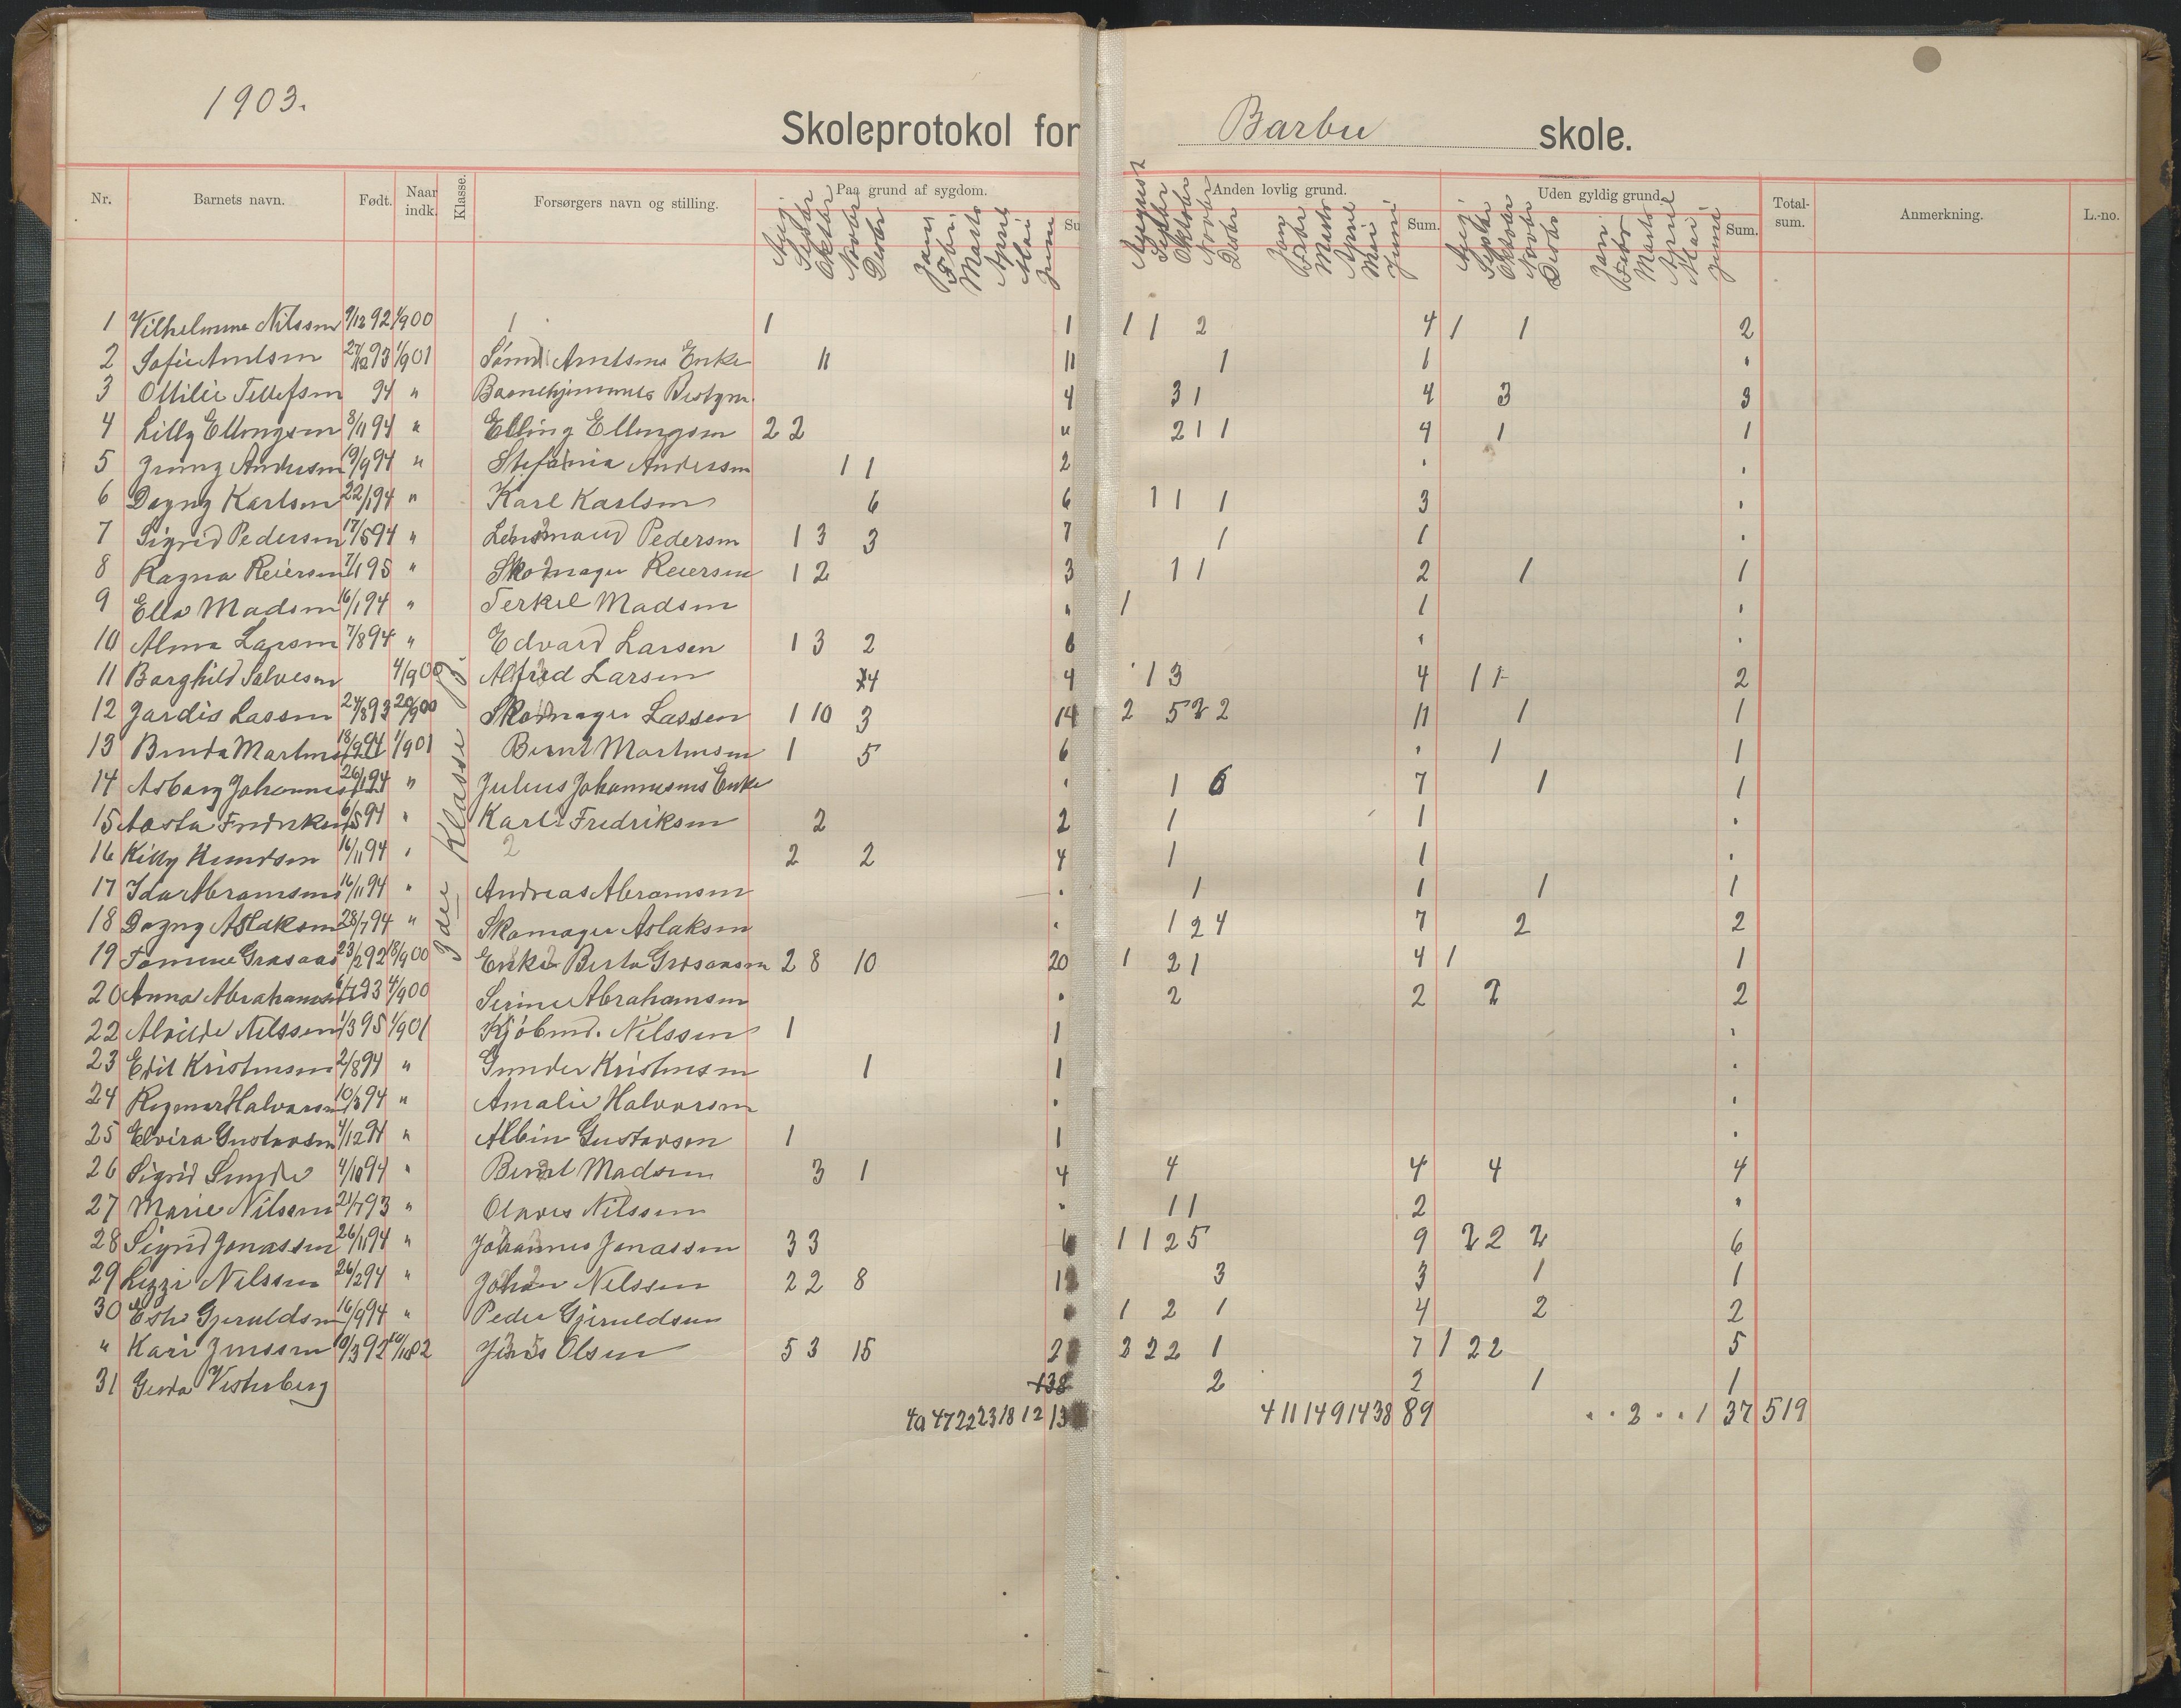 1903.
Skoleprotokol for Barbu skole.
Nr. Barnets navn. Født. Naar indk. Klasse. Forsørgers navn og stilling. Paa grund af sygdom. Anden lovlig grund. Sum. Uden gyldig grund. Sum. Total-sum. Anmerkning. L.-no.
Aug. Septbr Oktobr Novbr Decbr Jan Febr Marts April Mai Juni Su August Septbr Oktobr Novbr Decbr Jan Febr Marts April Mai Juni Aug. Septbr Oktobr Novbr Decbr Jan Febr Marts April Mai Juni
1 Vilhelmine Nilssen 9/12 92 1/9 00 1 1 1 1 2 4 1 1 2
2 Sofie Arntsen 93 1/9 01 Arntsens Enke 11 11 1 1 "
3 Ottilie Tellefsen 94 " Barnehjemmets Bestyrer 4 3 1 4 3 3
4 Lilly Ellingsen 8/11 94 " Elling Ellingsen 2 2 " 2 1 1 4 1 1
5 Andersen 19/9 94 " Stefania Andersen 1 1 2 " "
6 Dagny Karlsen 22/1 94 " Karl Karlsen 6 6 1 1 1 3 "
7 Sigrid Pedersen 17/5 94 " Lensmand Pedersen 1 3 3 7 1 1 "
8 Ragna Reiersen 7/1 95 " Skomager Reiersen 1 2 3 1 1 2 1 1
9 Ella Madsen 16/1 94 " Terkel Madsen " 1 1 "
10 Alma Larsen 7/8 94 " Edvard Larsen 1 3 2 6 " "
11 Borghild Salvesen 4/9 00 Alfred Larsen 4 4 1 3 4 1 1 2
12 Jardis Lassen 24/8 93 20/9 00 Skomager Lassen 1 10 3 14 2 5 2 2 11 1 1
13 Martinsen 1/9 01 Bernt Martinsen 1 5 6 " 1 1
14 Asborg Johannes 26/1 94 " Julius Johannesens Enke " 1 6 7 1 1
15 Aasta Fredriksen 6/5 94 " Karl Fredriksen 2 2 1 1 "
16 Kitty Knudsen 16/11 94 " 2 2 2 4 1 1 "
17 Ida Abramsen 16/11 94 " Andreas Abramsen " 1 1 1 1
18 Dagny Aslaksen 28/7 94 " Skomager Aslaksen " 1 2 4 7 2 2
19 Tomine Grasaas 23/2 92 18/9 00 Enke Berta Grosaasen 2 8 10 20 1 2 1 4 1 1
20 Anna Abrahamsen 93 4/9 00 Serine Abrahamsen " 2 2 2 2
22 Alvilde Nilssen 1/3 95 1/9 01 Kjöbmd. Nilssen 1 1 "
23 Edit Kristensen 2/8 94 " Gunder Kristensen 1 1 "
24 Ragnar Halvorsen 10/3 94 " Amalie Halvorsen " "
25 Elvira Gustavsen 4/12 94 " Albin Gustavsen 1 1 "
26 Sigrid Sunde 4/10 94 " Bernt Madsen 3 1 4 4 4 4 4
27 Marie Nilssen 21/7 93 " Olaves Nilssen " 1 1 2 "
28 Sigrid Jonassen 26/11 94 " Johannes Jonassen 3 3 6 1 1 2 5 9 2 2 2 6
29 Lizzi Nilssen 26/2 94 " Johan Nilssen 2 2 8 1 3 3 1 1
30 Gjeruldsen 16/9 94 " Peder Gjeruldsen 1 2 1 4 2 2
" Kari Jenssen 10/3 92 02 Jens Olsen 5 3 15 2 3 2 2 1 7 1 2 2 5
31 Gerda Vesterberg 138 2 2 1 1
40 47 22 23 18 12 13 4 11 14 9 14 38 89 " " 2 " " 1 37 519
3die Klasse